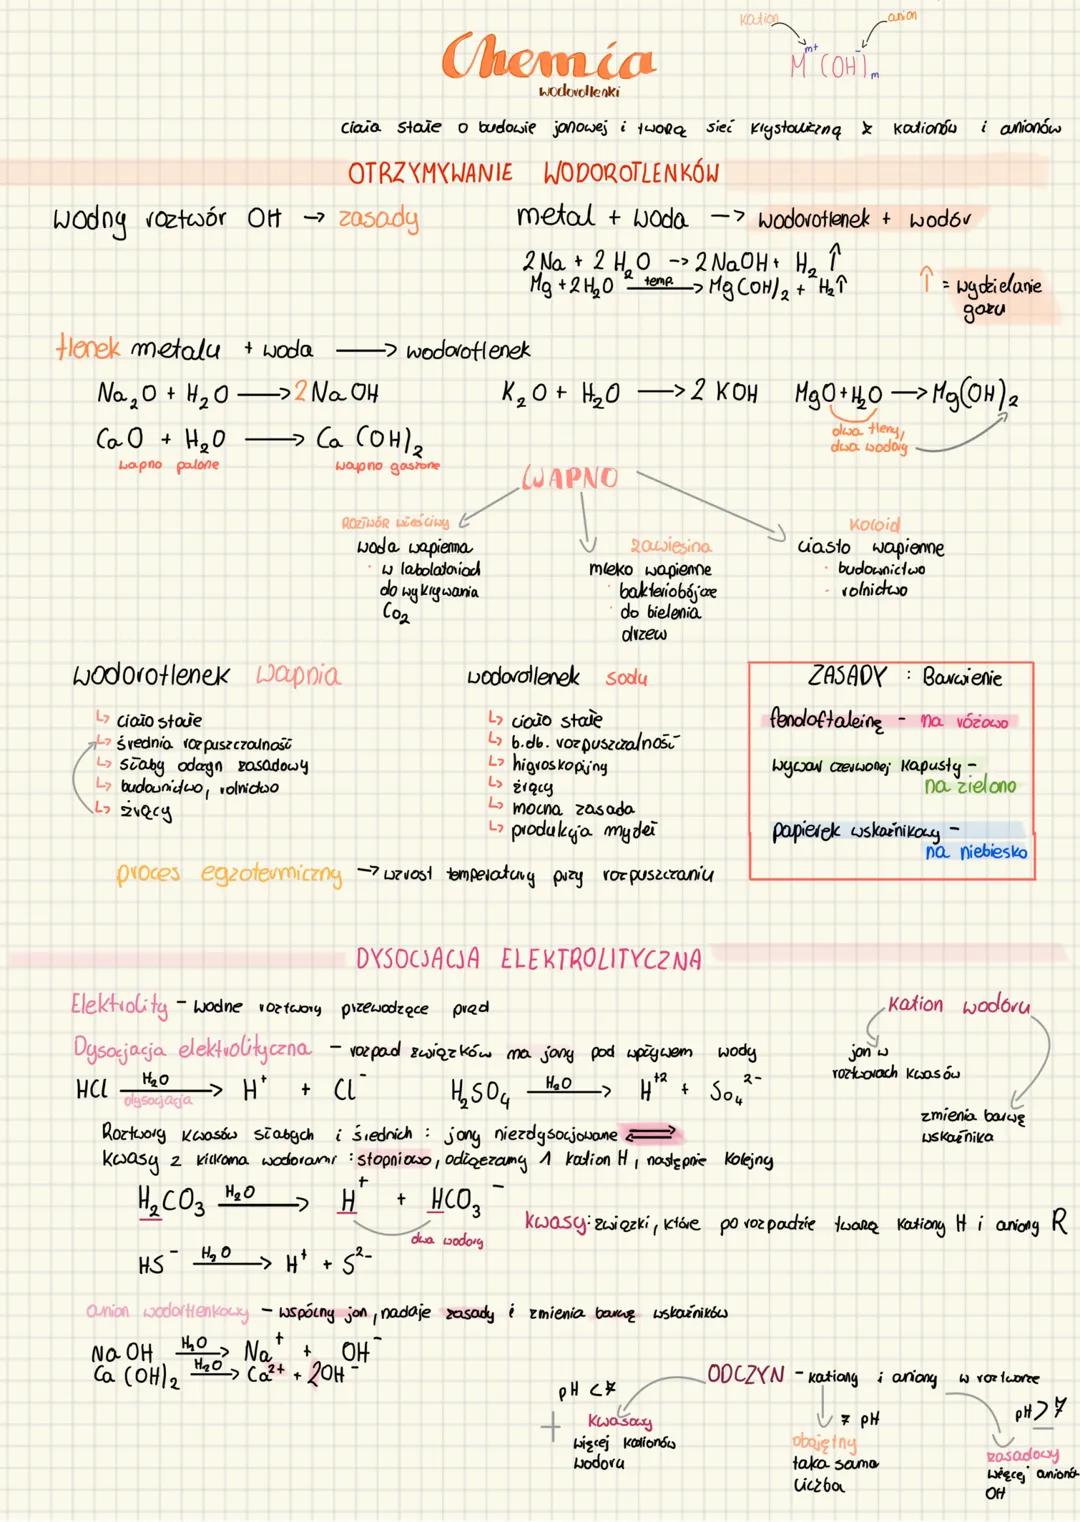 kation
anion
Chemia
M^m+ (OH^-)m
wodorotlenki
ciała stałe o budowie jonowej i tworzą sieć krystaliczną z kationów i anionów
OTRZYMYWANIE WODOROTLENKÓW
wodny roztwór OH → zasady
metal + woda -> wodorotlenek + wodór
2 Na + 2 H₂O -> 2 NaOH + H₂ ↑
Mg + 2 H₂O temp. -> Mg(OH)₂ + H₂↑
↑ = wydzielanie
gazu
tlenek metalu + woda → wodorotlenek
Na₂O + H₂O → 2 NaOH
K₂O + H₂O → 2 KOH
MgO + H₂O → Mg(OH)₂
dwa tleny,
dwa wodory
CaO + H₂O → Ca(OH)₂
wapno palone
wapno gaszone
WAPNO
ROZTWÓR właściwy
woda wapienna
· w labolatoriach
do wykrywania
Co₂
zawiesina
mleko wapienne
· bakteriobójcze
· do bielenia
drzew
Koloid
ciasto wapienne
· budownictwo
· rolnictwo
wodorotlenek wapnia
↳ ciało stałe
↳ średnia rozpuszczalność
↳ słaby odczyn zasadowy
↳ budownictwo, rolnictwo
↳ żrący
wodorotlenek sodu
↳ ciało stałe
↳ b.db. rozpuszczalność
↳ higroskopijny
↳ żrący
↳ mocna zasada
↳ produkcja mydeł
ZASADY : Barwienie
fenoloftaleinę - na różowo
wywar czerwonej kapusty -
na zielono
papierek wskaźnikowy -
na niebiesko
proces egzotermiczny → wzrost temperatury przy rozpuszczaniu
DYSOCJACJA ELEKTROLITYCZNA
Elektrolity - wodne roztwory przewodzące prąd
Dysocjacja elektrolityczna - rozpad związków na jony pod wpływem wody
HCl H₂O → H⁺ + Cl⁻
dysocjacja
H₂SO₄ H₂O → H⁺² + So₄²⁻
Kation wodoru
jon w
roztworach kwasów
zmienia barwę
wskaźnika
Roztwory kwasów słabych i średnich : jony niezdysocjowane ⇌
kwasy z kilkoma wodorami : stopniowo, odłączamy 1 kation H, następnie kolejny
H₂CO₃ H₂O → H⁺ + HCO₃⁻
dwa wodory
kwasy: związki, które po rozpadzie tworzą kationy H i aniony R
HS⁻ H₂O → H⁺ + S²⁻
anion wodortlenkowy - wspólny jon, nadaje zasady i zmienia barwę wskaźników
NaOH H₂O → Na⁺ + OH⁻
Ca(OH)₂ H₂O → Ca²⁺ + 2OH⁻
ODCZYN - kationy i aniony w roztworze
pH < 7
+ kwasowy
więcej kationów
wodoru
7 pH
obojętny
taka sama
liczba
pH > 7
zasadowy
więcej anionó
OH